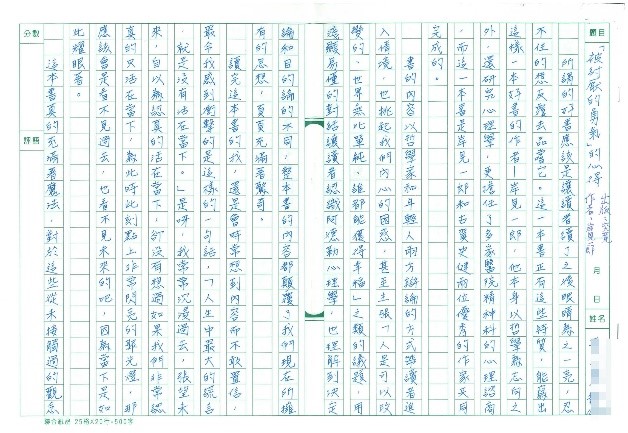 題目
「被討厭的勇氣」的心得
出版:究竟
作者:岸見一郎
月
日
姓名
所謂的好書應該是讓讀者讀了之後眼睛為之一亮,忍
不住的想反覆去品嘗它。這一本書正有這些特質,能寫出
這樣一本好書的作者—岸見一郎,他本身以哲學為志向之
外,還研究心理學,更擔任了多家醫院精神科的心理諮商
,而這一本書是岸見一郎和古賀史健兩位優秀的作家共同
完成的。
書的內容以哲學家和年輕人兩方辯論的方式讓讀者進
入情境,也挑起我們內心的困惑,甚至主張「人是可以改
變的,世界無比單純,誰都能獲得幸福」之類的議題,用
淺顯易懂的對話讓讀者認識阿德勒心理學,也理解到決定
論和目的論的不同,整本書的內容都顛覆了我們現在所擁
有的思想,頁頁充滿著驚奇。
讀完這本書的我,還是會時常想到內容而不敢置信,
最令我感到衝擊的是這樣的一句話,「人生中最大的謊言
,就是沒有活在當下。」是呀,我常常沉浸過去,張望未
來,自以為認真的活在當下,卻沒有想過如果我們非常認
真的只活在當下,就此時此刻點上非常閃亮的聚光燈,那
應該會是看不見過去,也看不見未來的吧,因為當下是如
此耀眼著。
這本書真的充滿著魔法,對於這些從未接觸過的觀念
分數
評語
25格X20行=500字